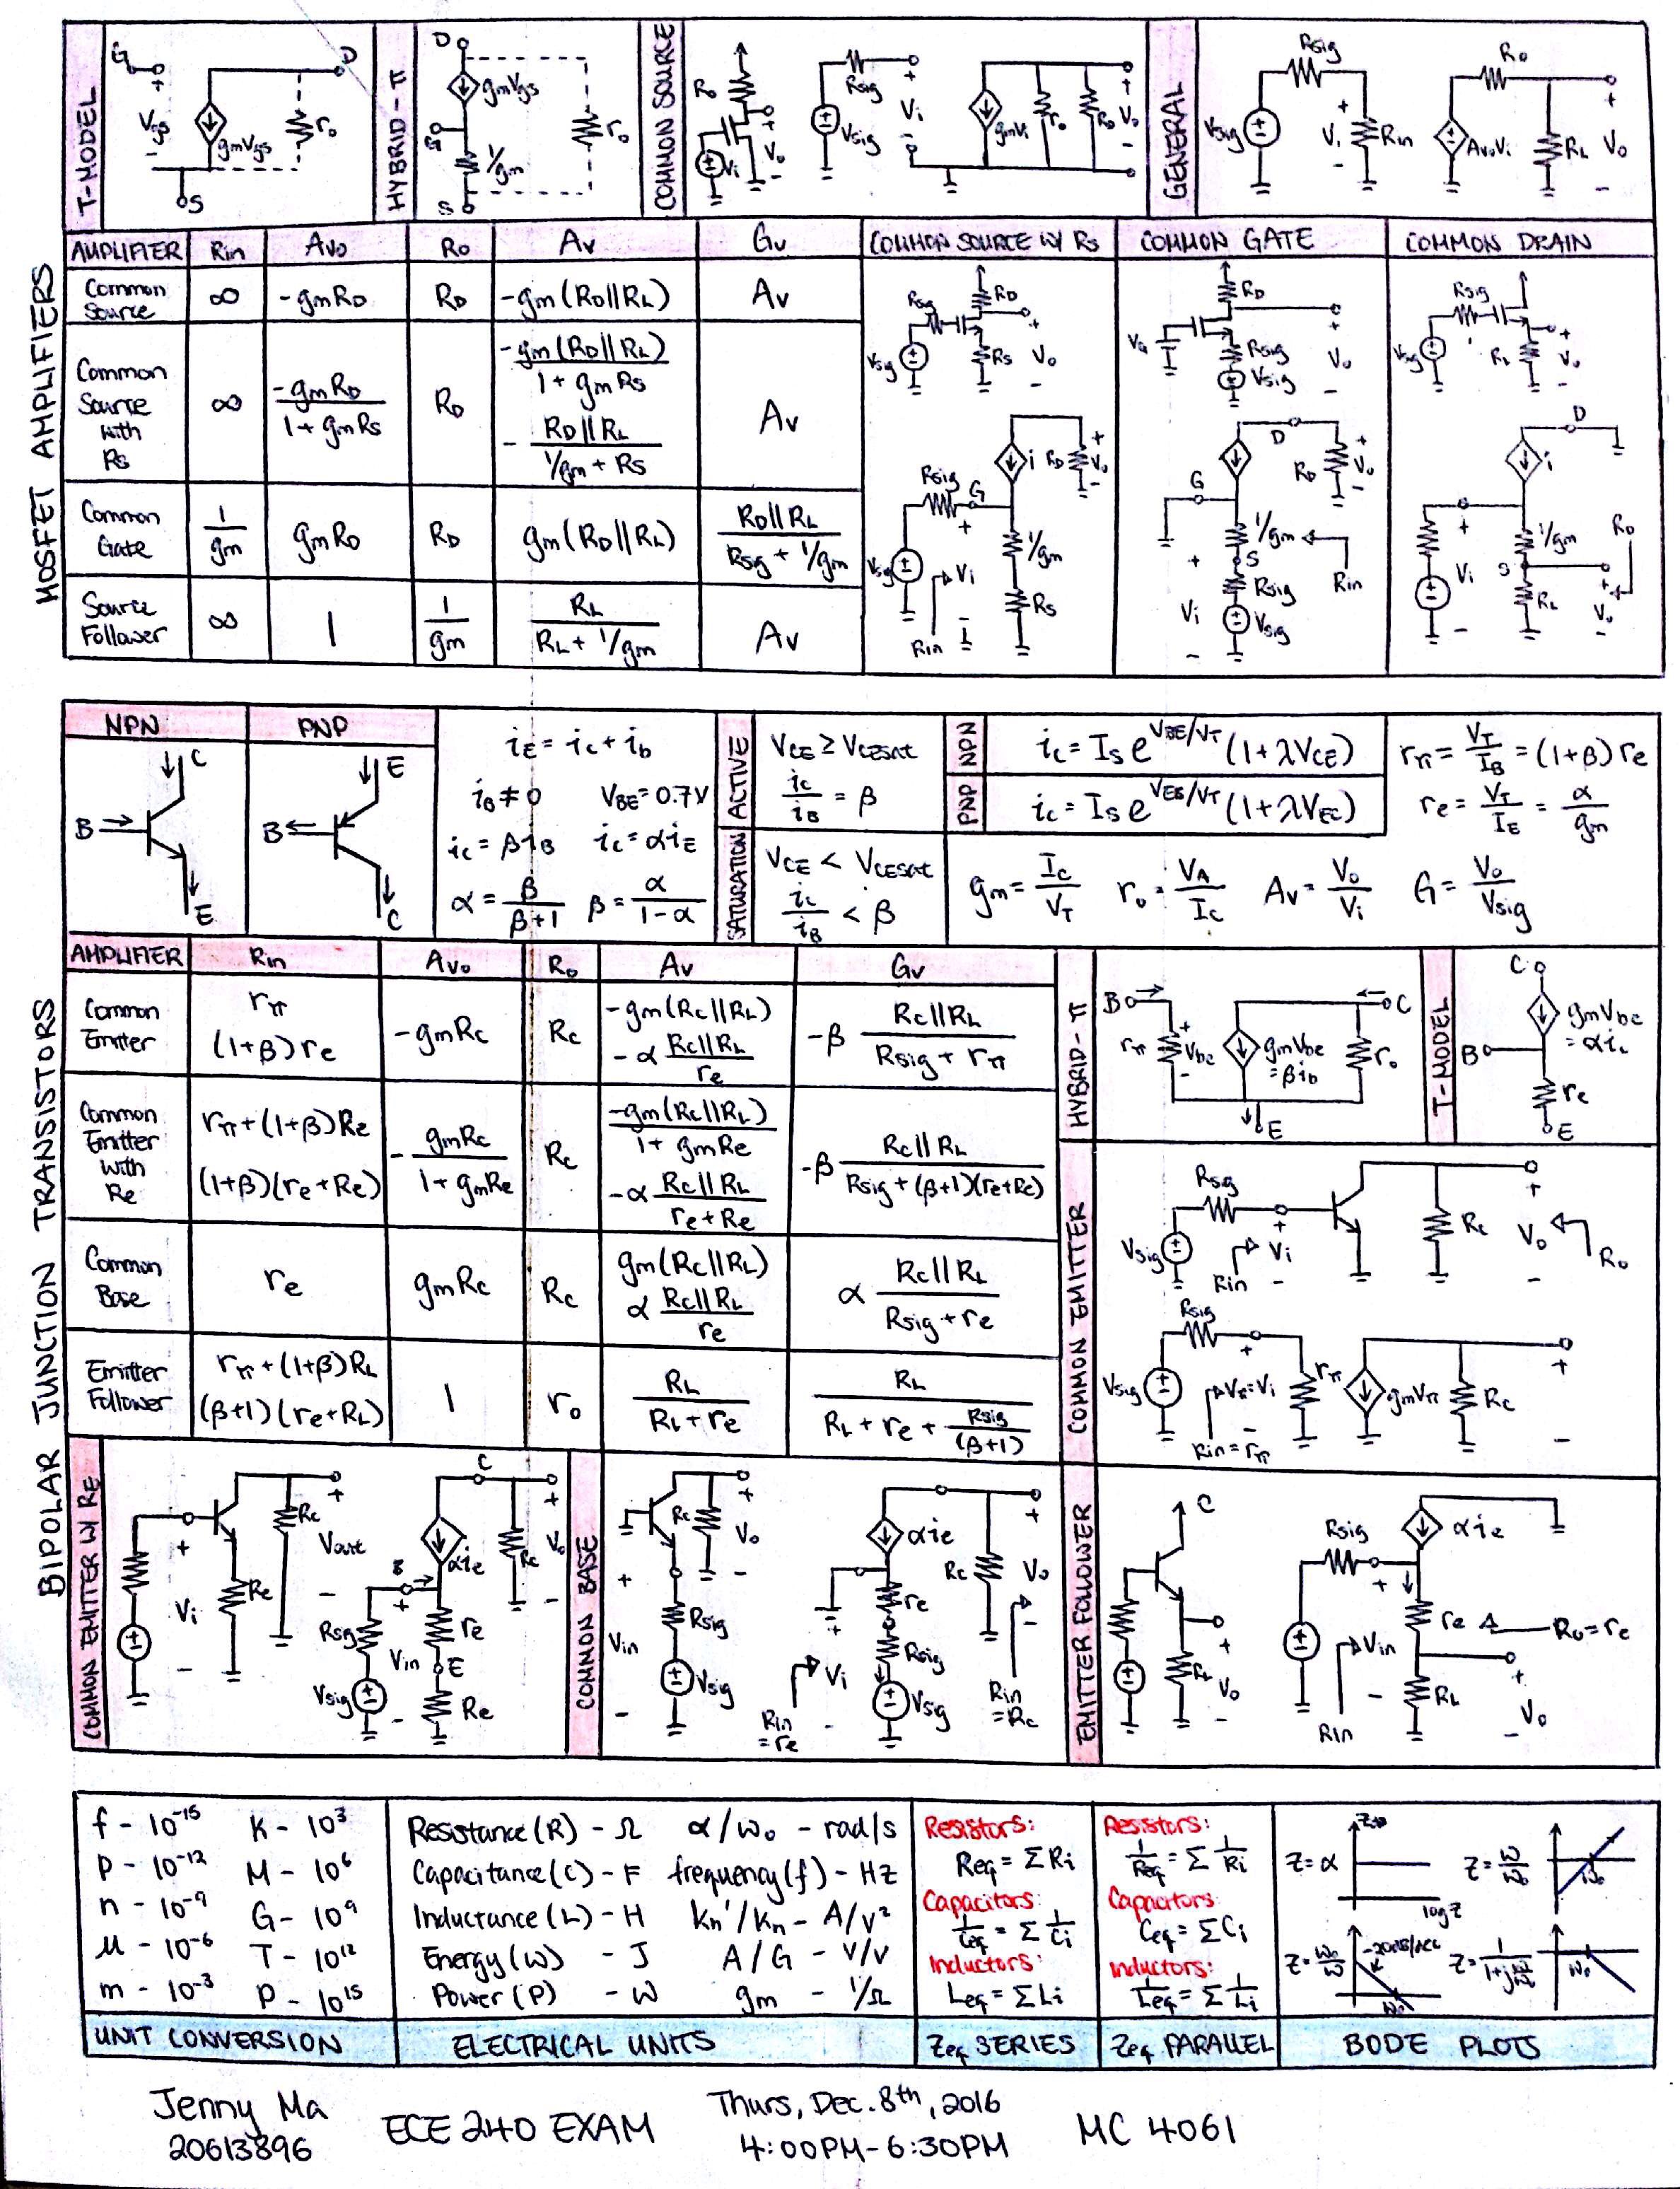 MOSFET AMPLIFIERS
T-MODEL
G
D
Vgs
+
-
gmVgs
ro
S
HYBRID-π
D
gmVgs
G
1/gm
ro
S
COMMON SOURCE
RD
Vi
Vo
Rsig
Vsig
Vi
gmVi
ro
RD
Vo
GENERAL
Rsig
Vsig
Vi
Rin
Ro
AvoVi
RL
Vo
AMPLIFIER Rin Avo Ro Av Gv
Common Source ∞ -gmRD RD -gm(RD||RL) Av
Common Source with Rs ∞ -gmRD / 1+gmRs RD -gm(RD||RL) / 1+gmRs
- RD||RL / 1/gm + Rs
Av
Common Gate 1/gm gmRD RD gm(RD||RL) RD||RL / Rsig + 1/gm
Source Follower ∞ 1 1/gm RL / RL + 1/gm Av
COMMON SOURCE W/ Rs
Rsig
RD
Vsig
Rs
Vo
Rsig
G
i
RD
Vo
Vsig
Vi
1/gm
Rs
Rin
COMMON GATE
RD
VG
Rsig
Vsig
Vo
D
G
RD
Vo
1/gm
S
Rin
Rsig
Vi
Vsig
COMMON DRAIN
Rsig
Vsig
RL
Vo
D
i
1/gm
Ro
Vi
S
RL
Vo
BIPOLAR JUNCTION TRANSISTORS
NPN
C
B
E
PNP
E
B
C
iE = ic + ib
iB ≠ 0 VBE = 0.7V
ic = βiB ic = αiE
α = β / β+1 β = α / 1-α
ACTIVE
VCE ≥ VCEsat
ic / iB = β
SATURATION
VCE < VCEsat
ic / iB < β
NPN ic = Is e^VBE/VT (1+λVCE)
PNP ic = Is e^VEB/VT (1+λVEC)
rπ = VT / IB = (1+β)re
re = VT / IE = α / gm
gm = Ic / VT ro = VA / Ic Av = Vo / Vi G = Vo / Vsig
AMPLIFIER Rin Avo Ro Av Gv
Common Emitter rπ
(1+β)re
-gmRc Rc -gm(Rc||RL)
-α Rc||RL / re
-β Rc||RL / Rsig + rπ
Common Emitter with Re rπ+(1+β)Re
(1+β)(re+Re)
- gmRc / 1+gmRe Rc -gm(Rc||RL) / 1+gmRe
-α Rc||RL / re+Re
-β Rc||RL / Rsig+(β+1)(re+Re)
Common Base re gmRc Rc gm(Rc||RL)
α Rc||RL / re
α Rc||RL / Rsig+re
Emitter Follower rπ+(1+β)RL
(β+1)(re+RL)
1 ro RL / RL+re RL / RL + re + Rsig/(β+1)
HYBRID-π
B
C
rπ
Vbe
gmVbe
=βib
ro
E
T-MODEL
C
gmVbe
B
re
E
COMMON EMITTER
Rsig
Vsig
Vi
Rin
Rc
Vo
Ro
Rsig
Vsig
Vπ=Vi
rπ
gmVπ
Rc
Rin=rπ
COMMON EMITTER W/ RE
Rc
Vout
Re
Vi
C
αie
Rc
Vo
B
Rsig
re
Vin
E
Vsig
Re
COMMON BASE
Rc
Vo
Rsig
Vin
Vsig
αie
Rc
Vo
re
Rsig
Vi
Vsig
Rin
=re
Rin
=Rc
EMITTER FOLLOWER
C
Vo
Rsig
αie
re
Ro=re
Vin
RL
Rin
Vo
f - 10^-15 K - 10^3
p - 10^-12 M - 10^6
n - 10^-9 G - 10^9
μ - 10^-6 T - 10^12
m - 10^-3 P - 10^15
UNIT CONVERSION
Resistance (R) - Ω α/ωo - rad/s
Capacitance (C) - F frequency (f) - Hz
Inductance (L) - H Kn'/Kn - A/V²
Energy (W) - J A/G - V/V
Power (P) - W gm - 1/Ω
ELECTRICAL UNITS
Resistors:
Req = ΣRi
Capacitors:
1/Ceq = Σ 1/Ci
Inductors:
Leq = ΣLi
Zeq SERIES
Resistors:
1/Req = Σ 1/Ri
Capacitors
Ceq = ΣCi
Inductors:
1/Leq = Σ 1/Li
Zeq PARALLEL
Z = α
log Z
Z = ω/ωo
ωo
Z = ωo/ω
-20dB/DEC
ωo
Z = 1 / 1+jω/ωo
ωo
BODE PLOTS
Jenny Ma
20613896
ECE 240 EXAM
Thurs, Dec. 8th, 2016
4:00PM-6:30PM
MC 4061